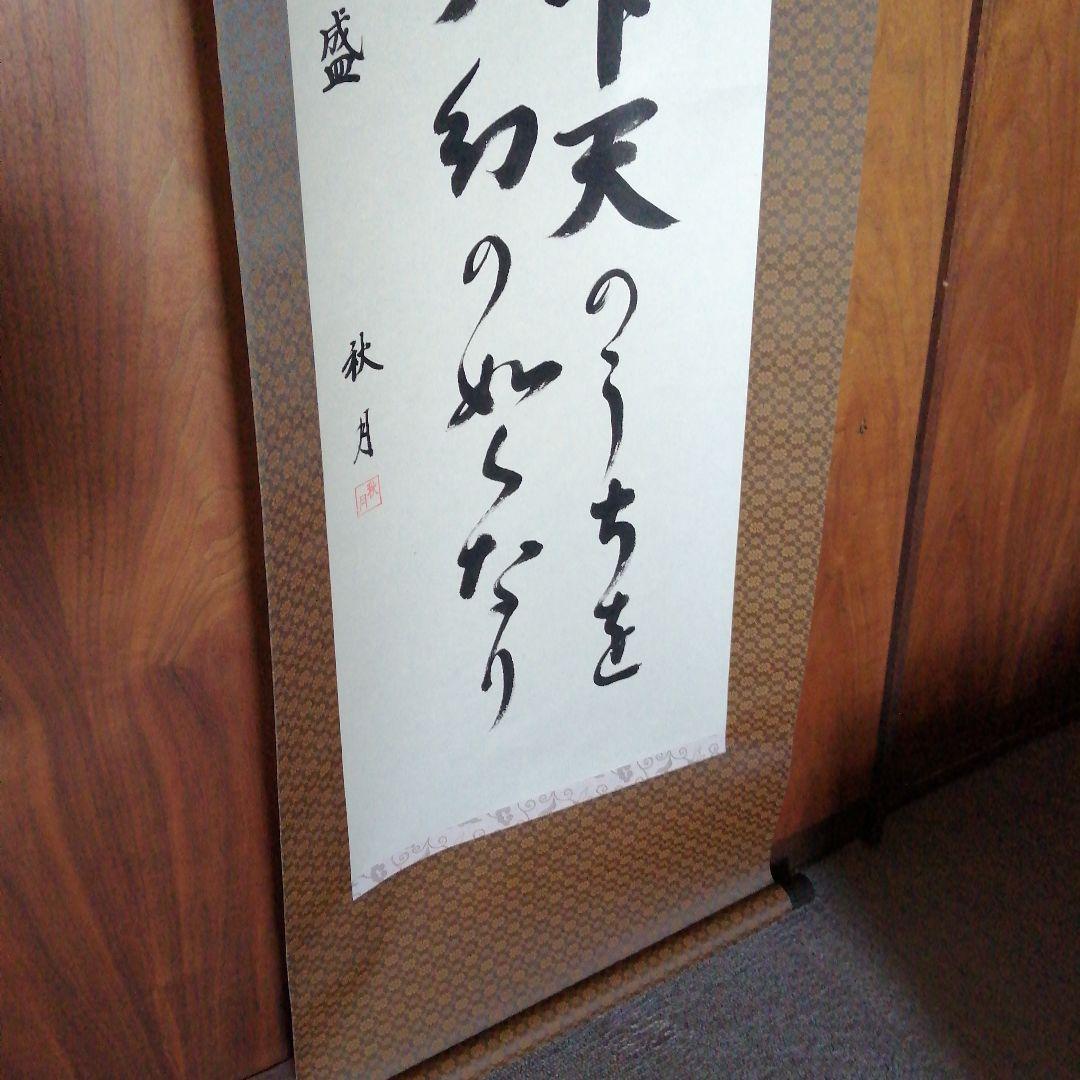 天のうちを
幻の如くなり
盛
秋月
秋月